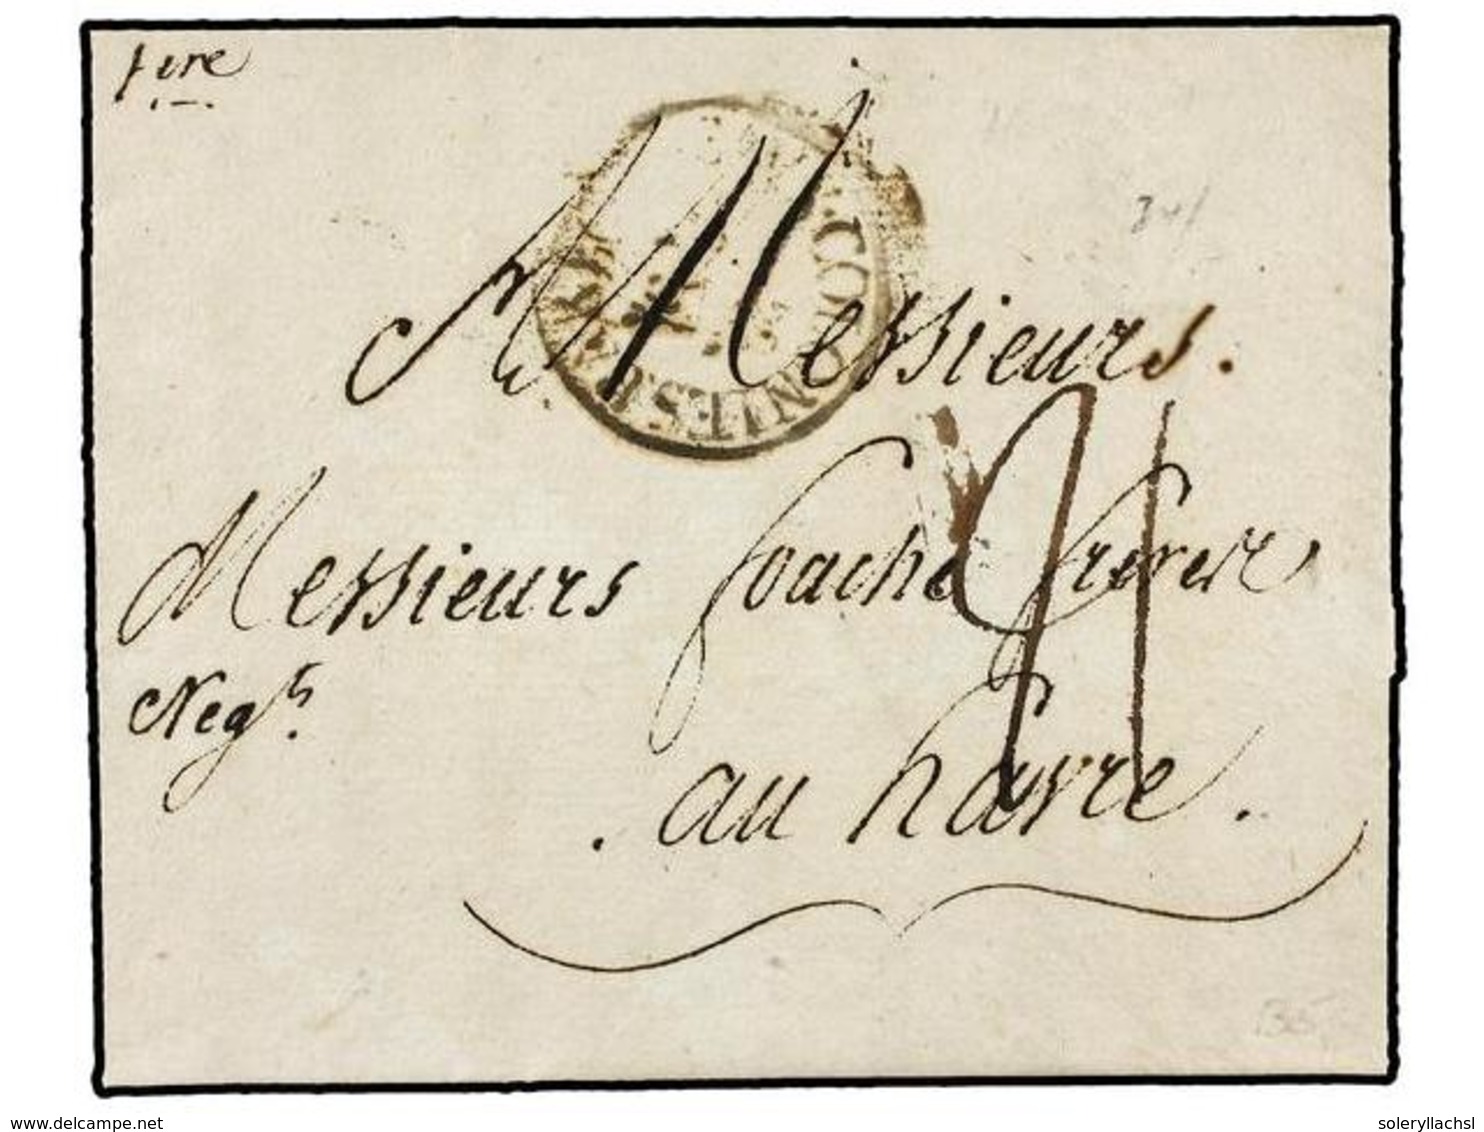 1ere
Messieurs.
Messieurs foache freres
Negts.
. au havre .
COL
www.delcampe.net
soleryllachsl